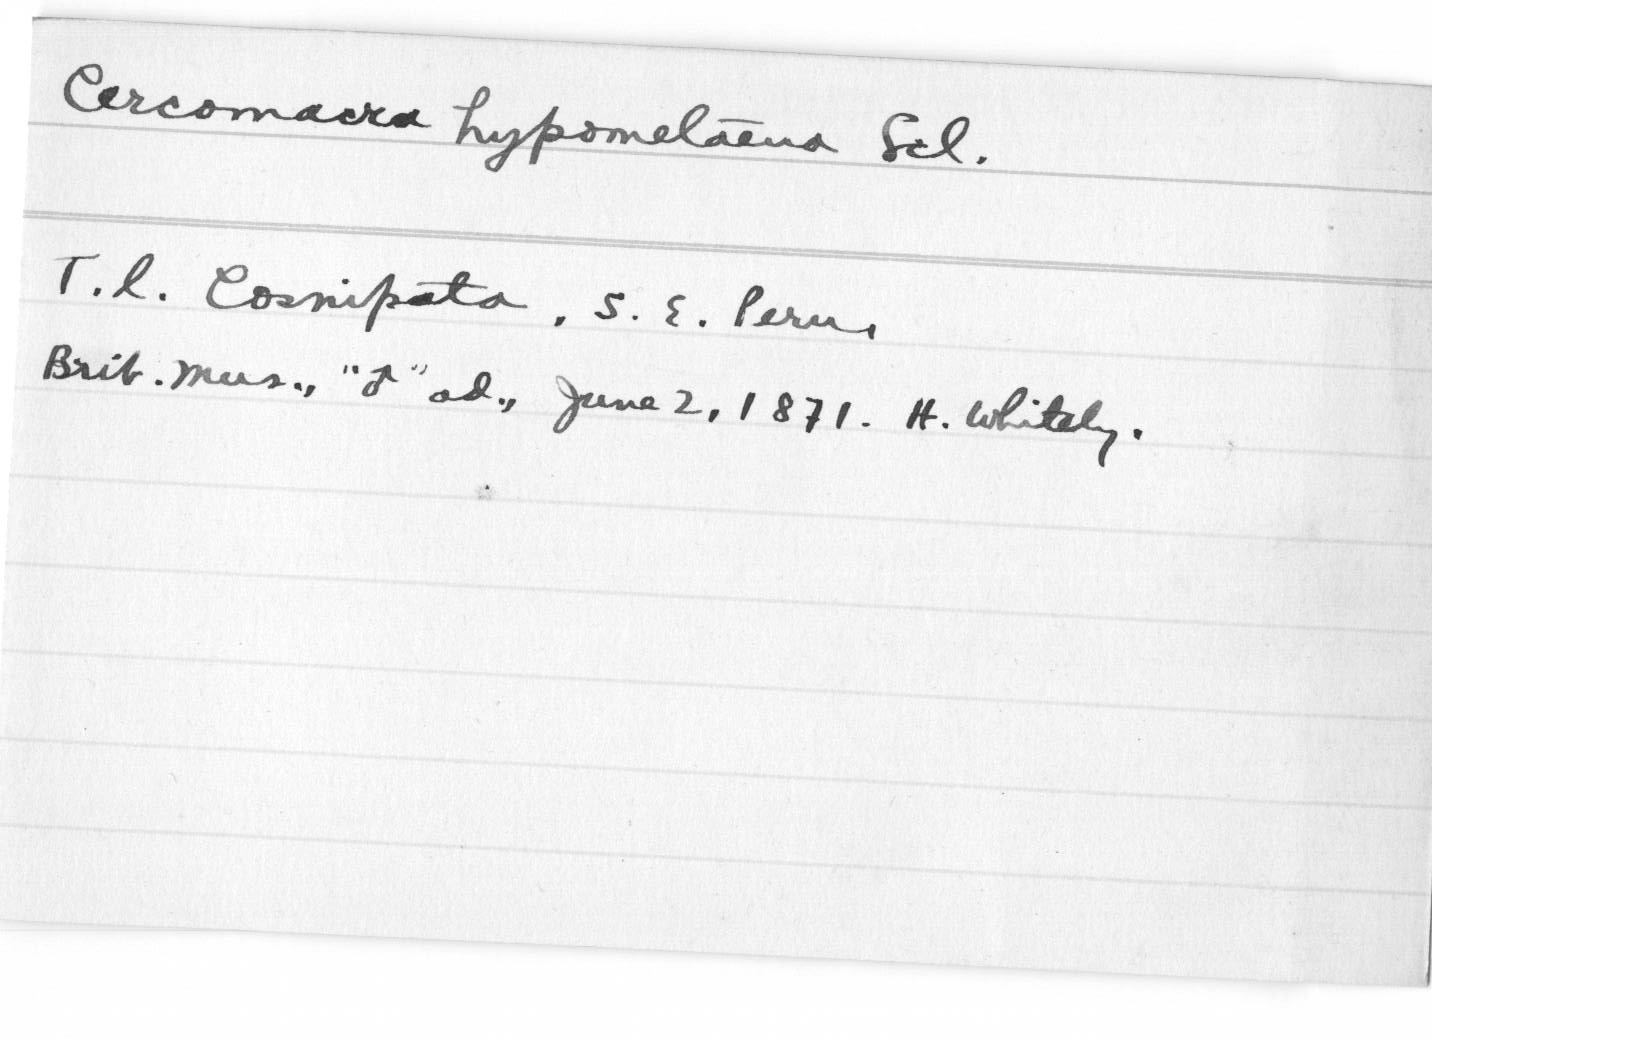 Cercomacra hypomelaena Scl.
T.l. Cosnipata, S. E. Peru.
Brit. Mus., "♂" ad., June 2, 1871. H. Whitely.